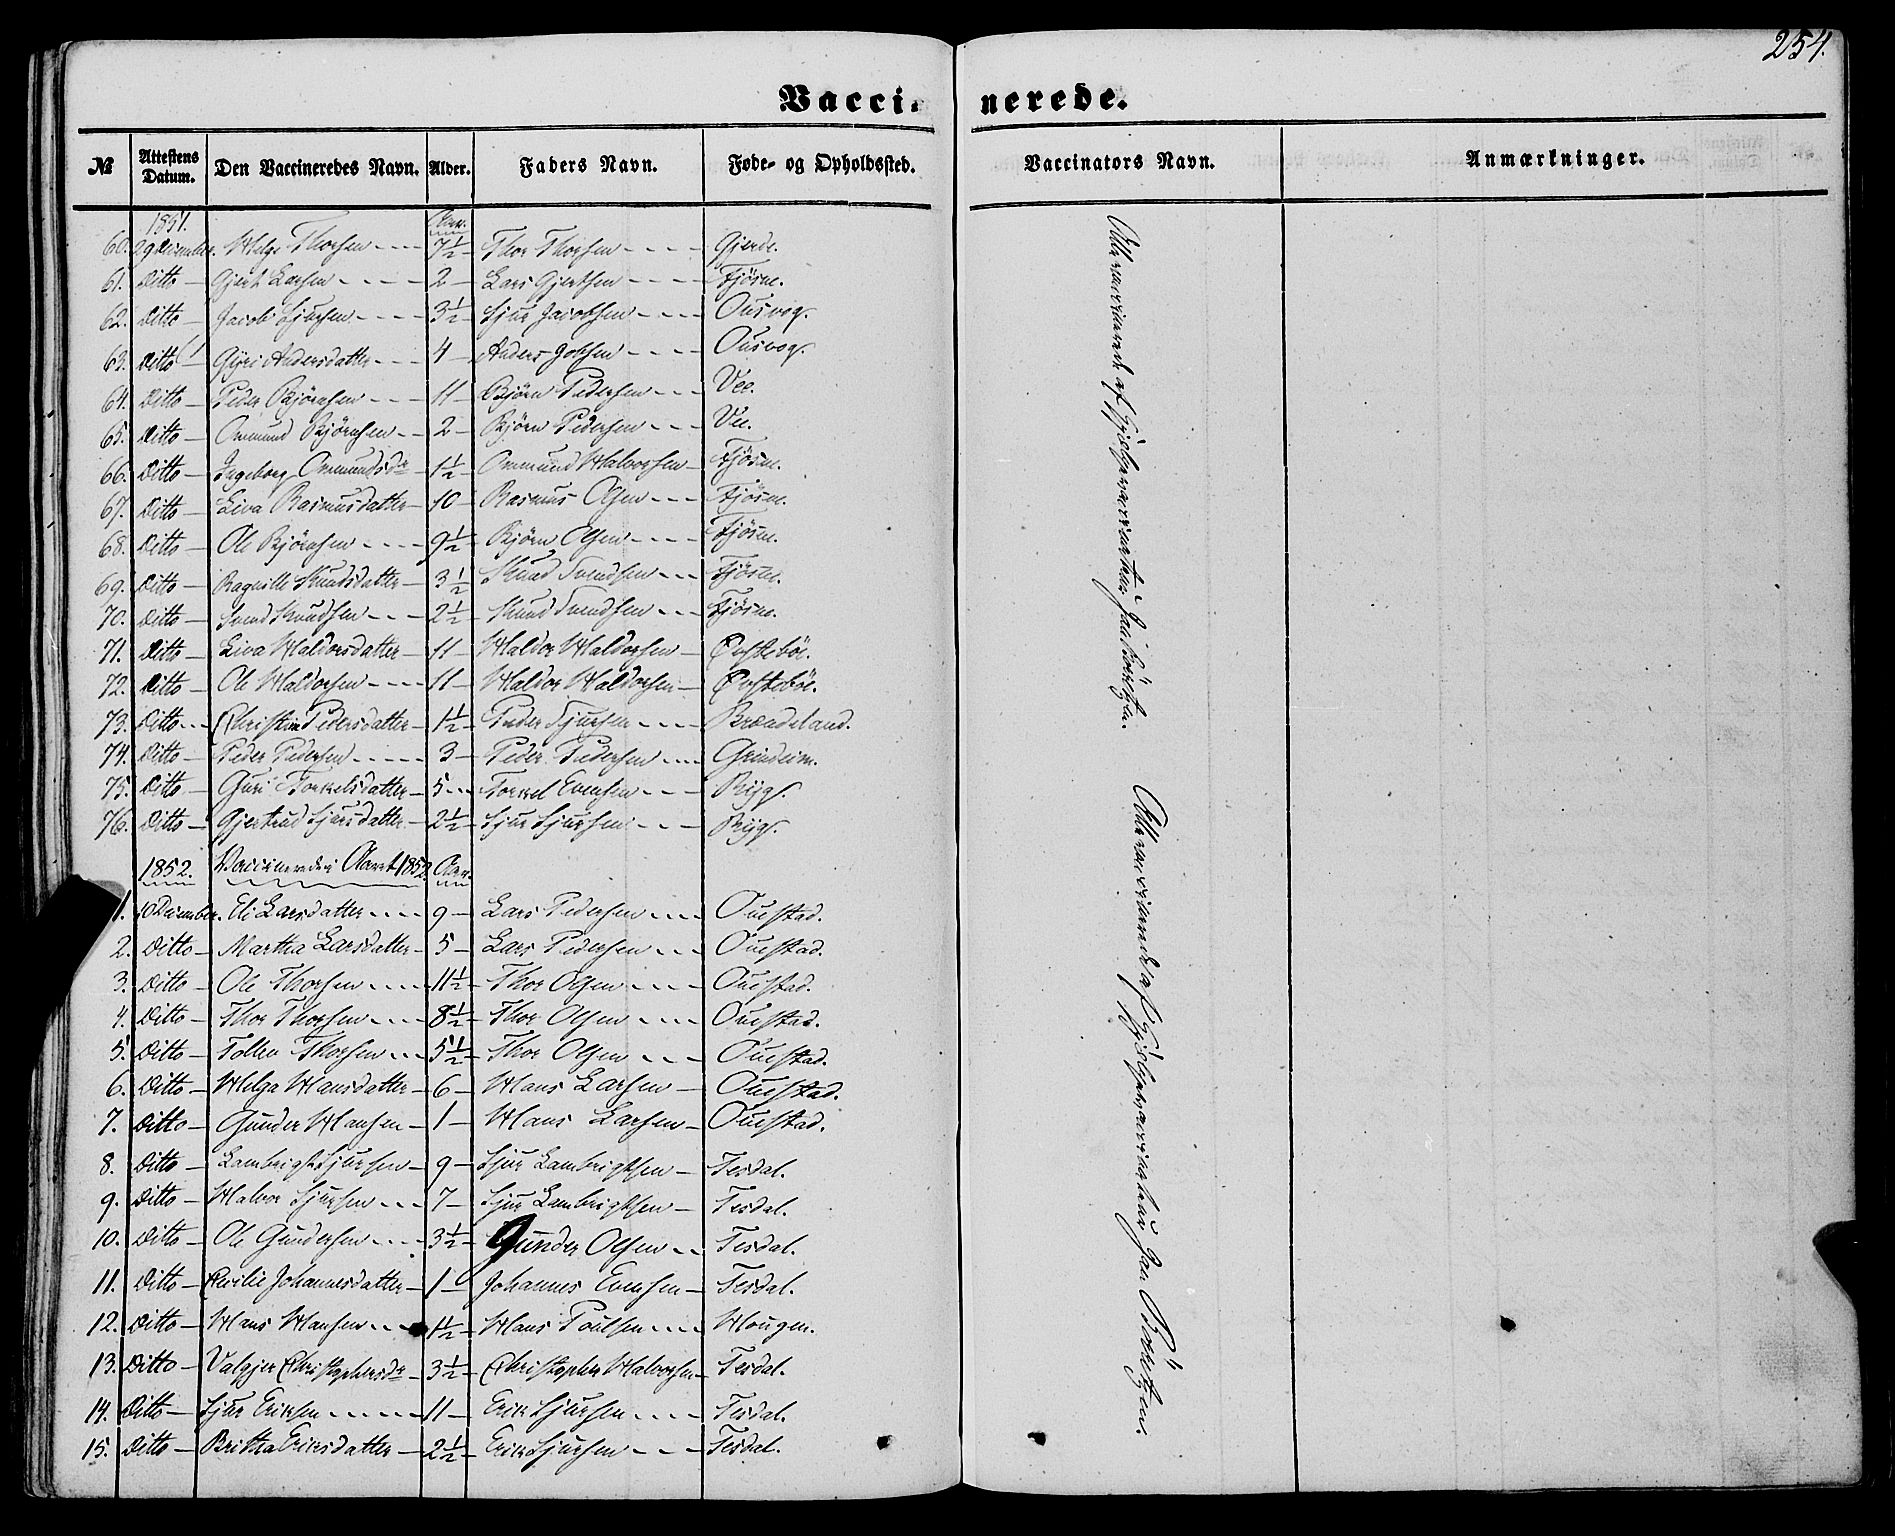 254.
Vaccinerede.
№ Attestens Datum. Den Vaccineredes Navn. Alder. Faders Navn. Føde- og Opholdssted. Vaccinators Navn. Anmærkninger.
1851. Aar.
60. 29 December. Helge Thorsen 7½ Thor Thorsen Gjerde.
61. Ditto Gjert Larsen 2 Lars Gjertsen Fjøsne.
62. Ditto Jacob Sjursen 3½ Sjur Jacobsen Ousvog.
63. Ditto Gyri Andersdatter 4 Anders Ousvog.
64. Ditto Peder Bjørnsen 11 Bjørn Pedersen Vee.
65. Ditto Ommund Bjørnsen 2 Bjørn Pedersen Vee.
66. Ditto Ingeborg Ommundsdr 1½ Ommund Halvorsen Fjøsne.
67. Ditto Liva Rasmusdatter 10 Rasmus Olsen Fjøsne.
68. Ditto Ole Bjørnsen 9½ Bjørn Olsen Fjøsne.
69. Ditto Ragnille Knudsdatter 3½ Knud Svendsen Fjøsne.
70. Ditto Svend Knudsen 2½ Knud Svendsen Fjøsne.
71. Ditto Liva Haldorsdatter 11 Haldor Haldorsen Østebøe.
72. Ditto Ole Haldorsen 11 Haldor Haldorsen Østebøe.
73. Ditto Christine Pedersdatter 1½ Peder Sjursen Brændeland.
74. Ditto Peder Pedersen 3 Peder Pedersen Grindeim.
75. Ditto Guri Torkelsdatter 5 Torkel Evensen Ryg.
76. Ditto Gjertrud Sjursdatter 2½ Sjur Sjursen Ryg.
1852. Vaccinerede i Aaret 1852. Aar.
1. 10 December. Eli Larsdatter 9 Lars Pedersen Ouestad.
2. Ditto Martha Larsdatter 5 Lars Pedersen Ouestad.
3. Ditto Ole Thorsen 11½ Thor Olsen Ouestad.
4. Ditto Thor Thorsen 8½ Thor Olsen Ouestad.
5. Ditto Tollev Thorsen 5½ Thor Olsen Ouestad.
6. Ditto Helga Hansdatter 6 Hans Larsen Ouestad.
7. Ditto Gunder Hansen 1 Hans Larsen Ouestad.
8. Ditto Lambrigt Sjursen 9 Sjur Lambrigtsen Tesdal.
9. Ditto Halvor Sjursen 7 Sjur Lambrigtsen Tesdal.
10. Ditto Ole Gundersen 3½ Gunder Olsen Tesdal.
11. Ditto Cecilie Johannesdatter 1 Johannes Evensen Tesdal.
12. Ditto Hans Hansen 1½ Hans Poulsen Hougen.
13. Ditto Valgjer Christophersdr 3½ Christopher Halvorsen Tesdal.
14. Ditto Sjur Eriksen 11 Erik Sjursen Tesdal.
15. Ditto Britha Eriksdatter 2½ Erik Sjursen Tesdal.
Alle vaccinerede af Hjælpevaccinateur Jan
Alle vaccinerede af Hjælpevaccinateur Jan